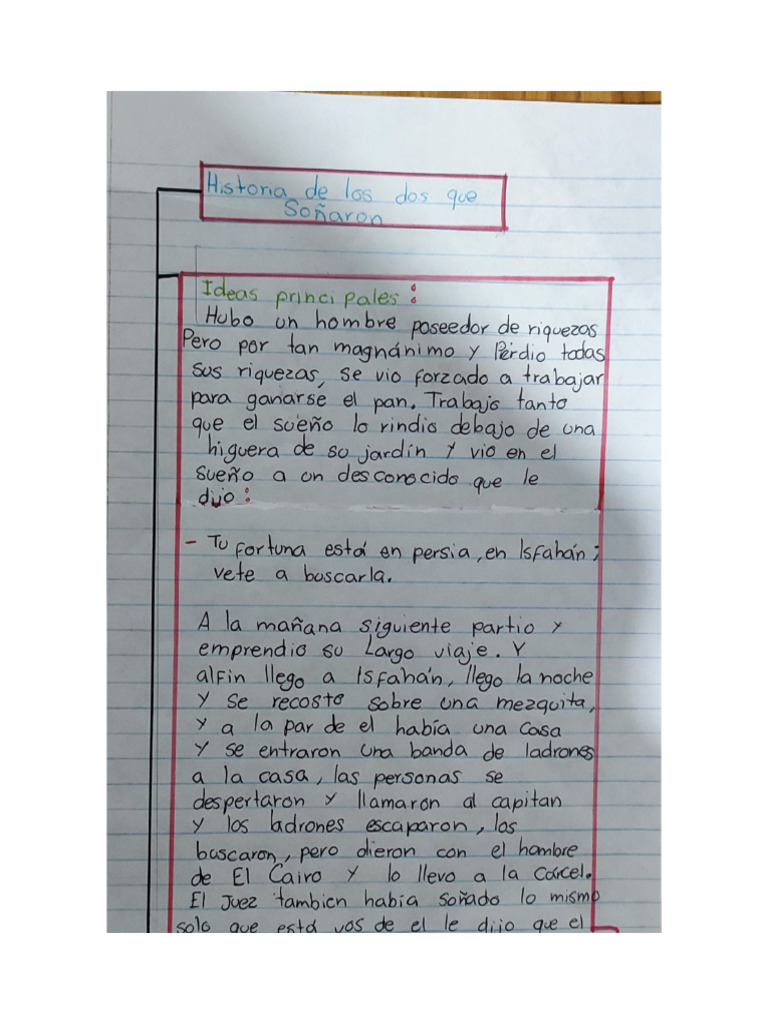 Historia de los dos que
Soñaron
Ideas principales:
Hubo un hombre poseedor de riquezas
Pero por tan magnánimo y Perdio todas
sus riquezas, se vio forzado a trabajar
para ganarse el pan. Trabajo tanto
que el sueño lo rindio debajo de una
higuera de su jardín y vio en el
sueño a un desconocido que le
dijo:
- Tu fortuna está en persia, en Isfahán;
vete a buscarla.
A la mañana siguiente partio y
emprendio su Largo viaje. Y
alfin llego a Isfahán, llego la noche
y se recosto sobre una mezquita,
y a la par de el había una casa
y se entraron una banda de ladrones
a la casa, las personas se
despertaron y llamaron al capitan
y los ladrones escaparon, los
buscaron, pero dieron con el hombre
de El Cairo y lo llevo a la Cárcel.
El Juez tambien había soñado lo mismo
solo que está vos de el le dijo que el